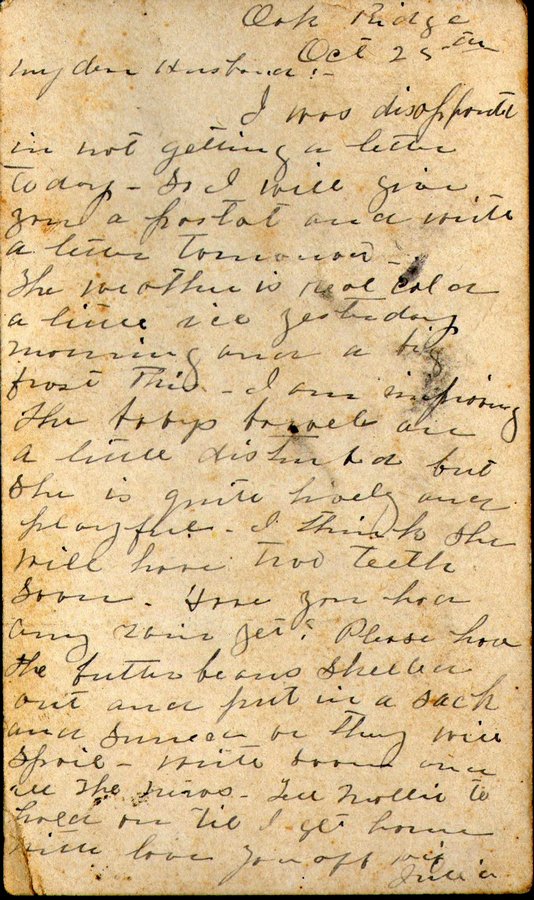 Oak Ridge
Oct 25th
My dear Husband:-
I was disappointed
in not getting a letter
today - So I will give
you a postal and write
a letter tomorrow -
The weather is real cold
a little ice yesterday
morning and a big
frost this - I am improving
the babys bowels are
a little disturbed but
she is quite lively and
playful - I think she
will have two teeth
soon. Have you had
any rain yet? Please have
the butterbeans shelled
out and put in a sack
and sunned or they will
spoil - write soon and
all the news - Tell Mollie to
hold on 'til I get home
with love your aff wife
Julia